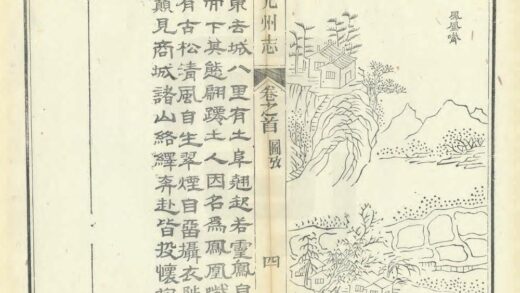 鳳凰
光州志
卷之首 圖攷
四
東去城八里有土阜翹起若靈鳥自
而下其態翩躚土人因名為鳳凰
有古松清風自生翠煙自留攝衣陟
巔見商城諸山絡繹奔赴皆投懷